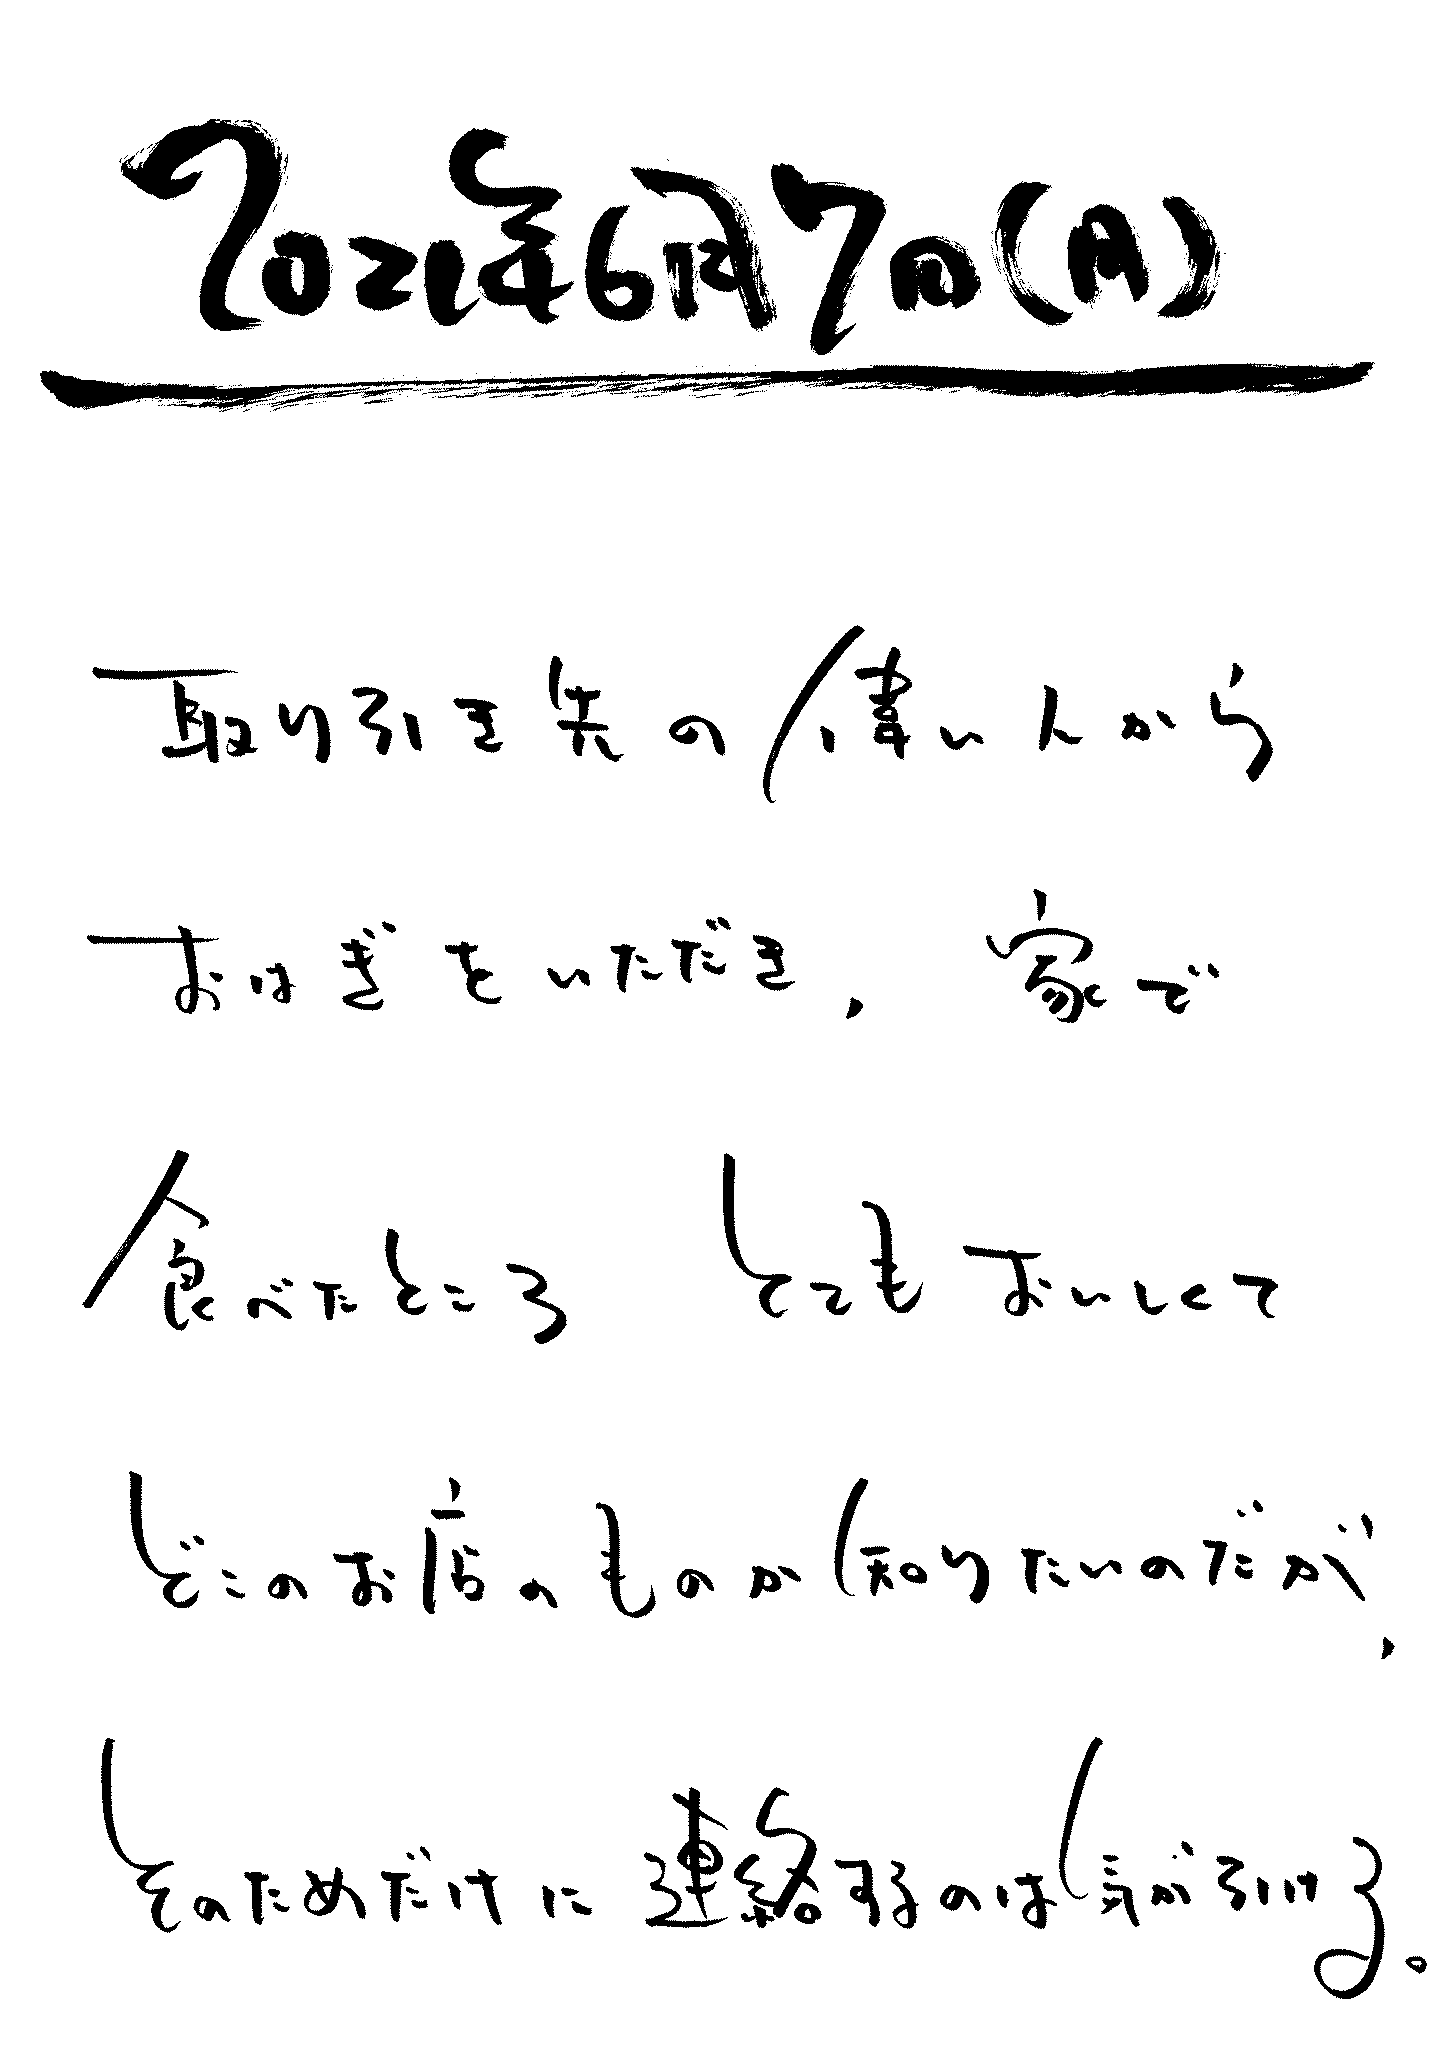 2021年6月7日(月)
取り引き先の偉い人から
おはぎをいただき、家で
食べたところ とてもおいしくて
どこのお店のものか知りたいのだが、
そのためだけに連絡するのは気が引ける。